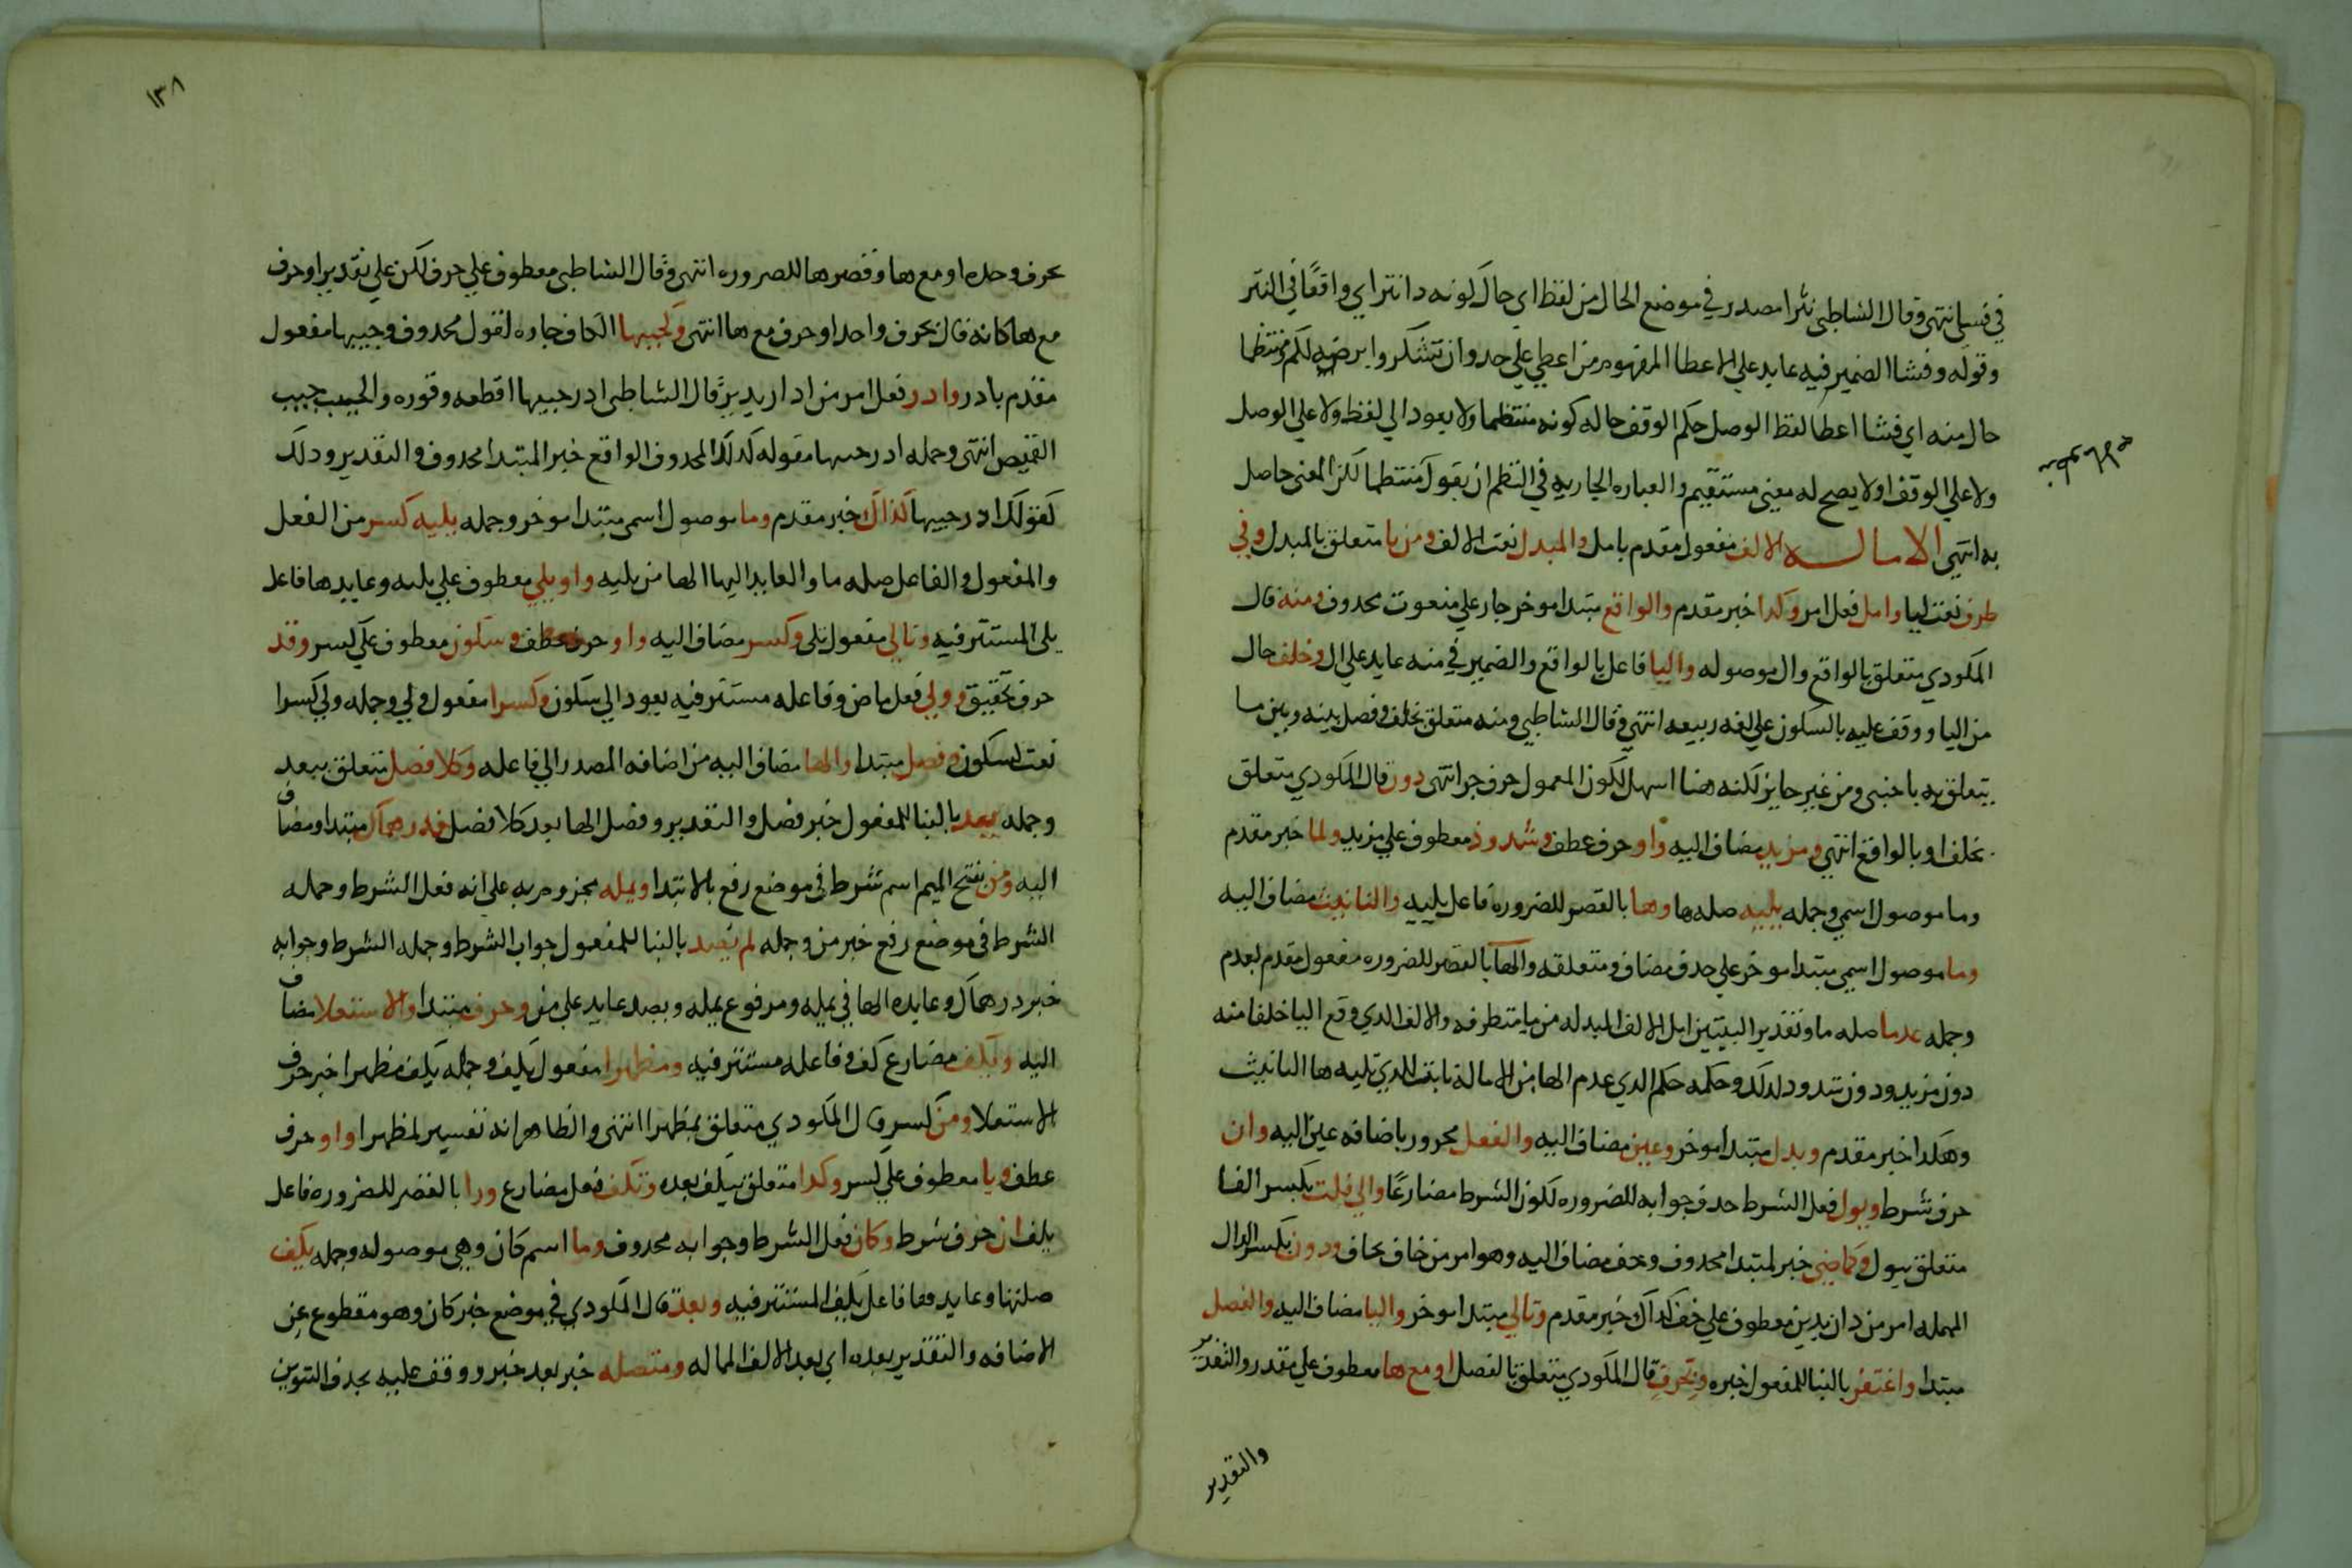 في فسيا انتهى وقال الشاطبي نثرا مصدر في موضع الحال من لفظ اي حال كونه دا نثر اي واقعًا في النثر
وقوله وفشا الضمير فيه عايد علي الاعطا المفهوم من اعطي علي حد وان تشكروا يرضه لكم ومنتظما
حال منه اي فشا اعطا لفظ الوصل حكم الوقف حاله كونه منتظما ولا يعود الي لفظ ولا علي الوصل
ولا علي الوقف اولا يصح له معني مستقيم والعباره الجاريه في النظم ان يقول منتظما لكن المعني حاصل
به انتهي الاماله الالف مفعول مقدم بامل والمبدل نعت الالف ومن يا متعلق بالمبدل وفي
طرف نعت ليا وامل فعل امر وكدا خبر مقدم والواقع مبتدا موخر جار علي منعوت محدوف ومنه قال
المكودي متعلق بالواقع وال موصوله واليا فاعل بالواقع والضمير في منه عايد علي ال وخلف حال
من اليا ووقف عليه بالسكون علي لغه ربيعه انتهي وقال الشاطبي ومنه متعلق بخلف وفصل بينه وبين ما
يتعلق به باجنبى ومن غير جايز لكنه هنا اسهل لكون المعمول حرف جر انتهى دون قال المكودي متعلق
بخلف او بالواقع انتهي ومزيد مضاف اليه واو حرف عطف وشدوذ معطوف علي مزيد ولما خبر مقدم
وما موصول اسمي وجمله يليه صله ما وها بالقصر للضروره فاعل يليه والتانيث مضاف اليه
وما موصول اسمي مبتدا موخر علي حدف مضاف ومتعلقه والها بالقصر للضروره مفعول مقدم بعدم
وجمله عدما صله ما وتقدير البيتين امل الالف المبدله من يا متطرفه والالف الدي وقع اليا خلفا منه
دون مزيد ودون شدود ولدلك وحكمه حكم الدي عدم الها من الامالة ثابت للدي تليه ها التانيث
وهكدا خبر مقدم وبدل مبتدا موخر وعين مضاف اليه والفعل مجرور باضافه عين اليه وان
حرف شرط ويول فعل الشرط حدف جوابه للضروره لكون الشرط مضارعًا والي فلت بكسر الفا
متعلق بيول وكماضي خبر لمبتدا محدوف وخف مضاف اليه وهو امر من خاف يخاف ودن بكسر الدال
المهمله امر من دان يدين معطوف علي خف كداك خبر مقدم وتالي مبتدا موخر واليا مضاف اليه والفصل
مبتدا واغتفر بالبنا للمفعول خبره وبحرف قال المكودي متعلق بالفصل او مع ها معطوف علي مقدر والتقدير
والتقدير
١٣٨
بحرف وحده او مع ها وقصر ها للصروره انتهى وقال الشاطبى معطوف علي حرف لكن علي تقدير او حرف
مع ها كانه قال بحرف واحد او حرف مع ها انتهى وكجيبها الكاف جاره لقول محدوف وجيبها مفعول
مقدم بادر وادر فعل امر من ادار يدير قال الشاطبى ادر جيبها اقطعه وقوره والجيب جيب
القميص انتهى وجمله ادر جيبها مقوله لدلك المحدوف الواقع خبر المبتدا محدوف والتقدير ودلك
كقولك ادر جيبها كذاك خبر مقدم وما موصول اسمى مبتدا موخر وجمله يليه كسر من الفعل
والمفعول والفاعل صله ما والعايد اليها الها من يليه واو يلي معطوف علي يليه وعايدها فاعل
يلى المستتر فيه وتالي مفعول يلى وكسر مضاف اليه واو حرف عطف وسكون معطوف علي كسر وقد
حرف تحقيق وولي فعل ماض وفاعله مستتر فيه يعود الي سكون وكسرا مفعول ولي وجمله ولي كسرا
نعت لسكون وفصل مبتدا والها مضاف اليه من اضافه المصدر الي فاعله وكلا فصل متعلق بيعد
وجمله يعد بالبنا للمفعول خبر فصل والتقدير وفصل الها يعد كلا فصل فدرهماك مبتدا ومضاف
اليه ومن بفتح الميم اسم شرط في موضع رفع بالابتدا ويمله مجزوم به علي انه فعل الشرط وجمله
الشرط في موضع رفع خبر من وجمله لم يصد بالبنا للمفعول جواب الشرط وجمله الشرط وجوابه
خبر درهماك وعايده الها في يمله ومرفوع يمله ويصد عايد علي من وحرف مبتدا والاستعلا مضاف
اليه ويكف مضارع كف وفاعله مستتر فيه ومظهرا مفعول يكف وجمله يكف مظهرا خبر حرف
الاستعلا ومن كسر قال المكودي متعلق بمظهرا انتهى والظاهر انه تفسير لمظهرا واو حرف
عطف ويا معطوف علي كسر وكدا متعلق بيكف بعده وتكف فعل مضارع ورا بالقصر للضروره فاعل
يكف ان حرف شرط وكان فعل الشرط وجوابه محدوف وما اسم كان وهي موصوله وجمله يكف
صلتها وعايد ما فاعل يكف المستتر فيه وبعد قال المكودي في موضع خبر كان وهو مقطوع عن
الاضافه والتقدير بعده اي بعد الالف الماله ومتصله خبر بعد خبر ووقف عليه بحدف التنوين